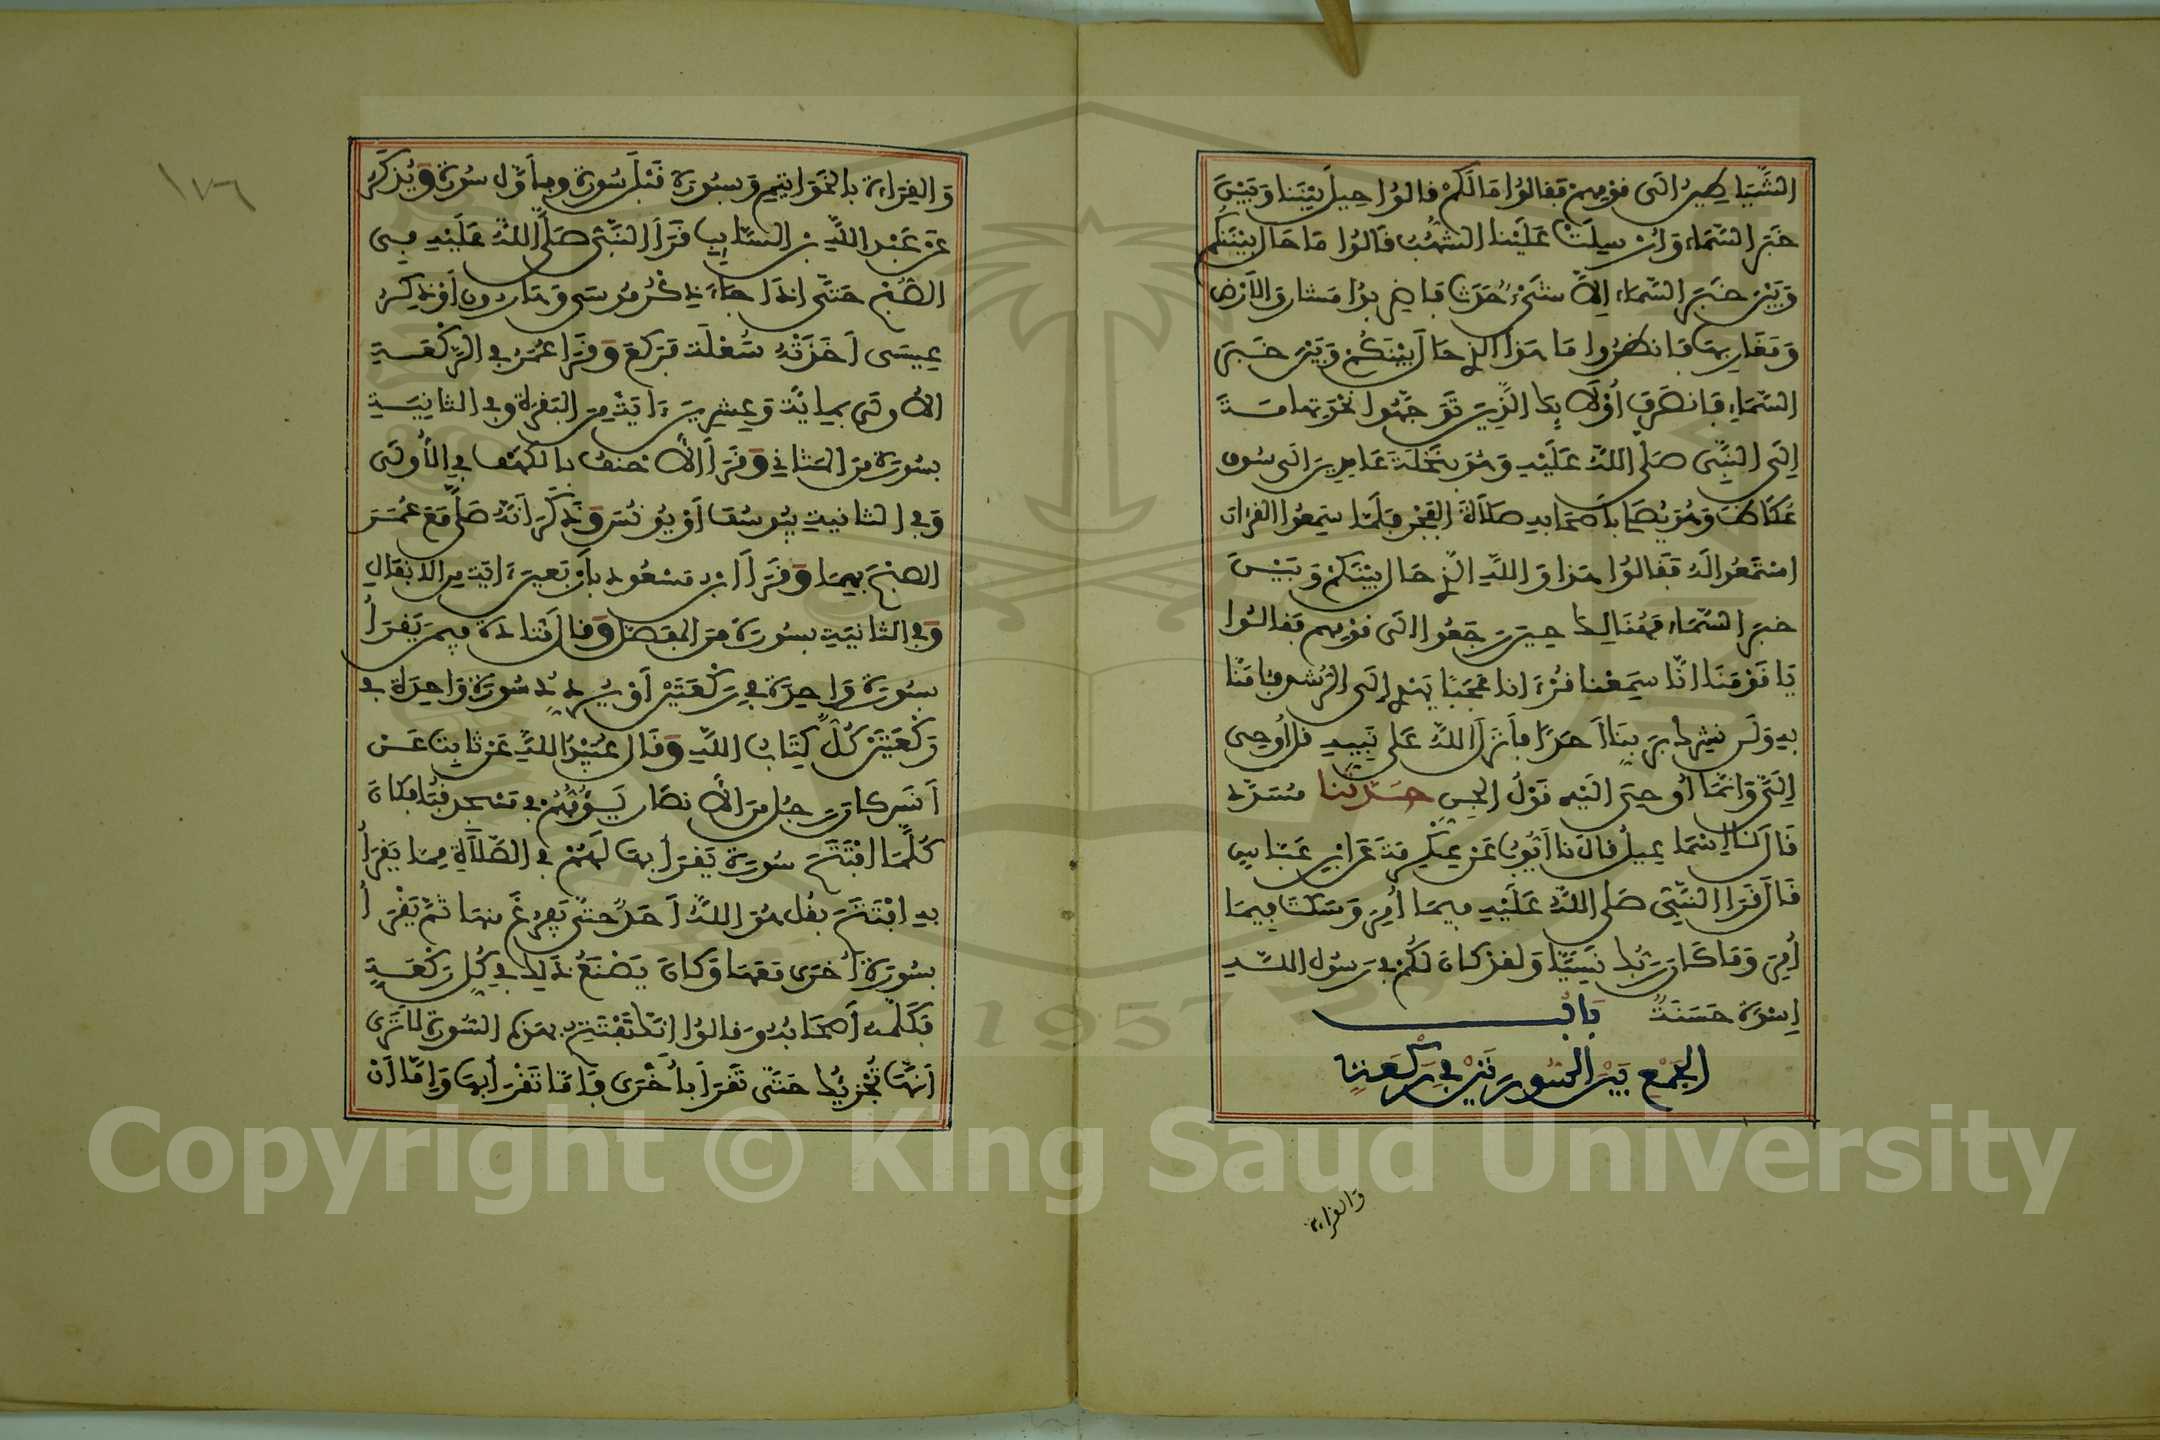 الشَّيَاطِينُ إِلَى قَوْمِهِمْ فَقَالُوا مَا لَكُمْ قَالُوا حِيلَ بَيْنَنَا وَبَيْنَ
خَبَرِ السَّمَاءِ وَأُرْسِلَتْ عَلَيْنَا الشُّهُبُ قَالُوا مَا حَالَ بَيْنَكُمْ
وَبَيْنَ خَبَرِ السَّمَاءِ إِلَّا شَيْءٌ حَدَثَ فَاضْرِبُوا مَشَارِقَ الْأَرْضِ
وَمَغَارِبَهَا فَانْظُرُوا مَا هَذَا الَّذِي حَالَ بَيْنَكُمْ وَبَيْنَ خَبَرِ
السَّمَاءِ فَانْصَرَفَ أُوْلَائِكَ الَّذِينَ تَوَجَّهُوا نَحْوَ تِهَامَةَ
إِلَى النَّبِيِّ صَلَّى اللَّهُ عَلَيْهِ وَهُوَ بِنَخْلَةَ عَامِدِينَ إِلَى سُوقِ
عُكَاظَ وَهُوَ يُصَلِّي بِأَصْحَابِهِ صَلَاةَ الْفَجْرِ فَلَمَّا سَمِعُوا الْقُرْآنَ
اسْتَمَعُوا لَهُ فَقَالُوا هَذَا وَاللَّهِ الَّذِي حَالَ بَيْنَكُمْ وَبَيْنَ
خَبَرِ السَّمَاءِ فَهُنَالِكَ حِينَ رَجَعُوا إِلَى قَوْمِهِمْ فَقَالُوا
يَا قَوْمَنَا إِنَّا سَمِعْنَا قُرْءَانًا عَجَبًا يَهْدِي إِلَى الرُّشْدِ فَآمَنَّا
بِهِ وَلَن نُّشْرِكَ بِرَبِّنَا أَحَدًا فَأَنْزَلَ اللَّهُ عَلَى نَبِيِّهِ قُلْ أُوحِيَ
إِلَيَّ وَإِنَّمَا أُوحِيَ إِلَيْهِ قَوْلُ الْجِنِّ حَدَّثَنَا مُسَدَّدٌ
قَالَ نَا إِسْمَاعِيلُ قَالَ نَا أَيُّوبُ عَنْ عِكْرِمَةَ عَنِ ابْنِ عَبَّاسٍ
قَالَ قَرَأَ النَّبِيُّ صَلَّى اللَّهُ عَلَيْهِ فِيمَا أُمِرَ وَسَكَتَ فِيمَا
أُمِرَ وَمَا كَانَ رَبُّكَ نَسِيًّا وَلَقَدْ كَانَ لَكُمْ فِي رَسُولِ اللَّهِ
إِسْوَةٌ حَسَنَةٌ بَابُ
الْجَمْعِ بَيْنَ السُّورَتَيْنِ فِي رَكْعَةٍ
والقراءة
١٧٦
وَالْقِرَاءَةِ بِالْخَوَاتِيمِ وَبِسُورَةٍ قَبْلَ سُورَةٍ وَبِأَوَّلِ سُورَةٍ وَيُذْكَرُ
عَنْ عَبْدِ اللَّهِ بْنِ السَّائِبِ قَرَأَ النَّبِيُّ صَلَّى اللَّهُ عَلَيْهِ فِي
الصُّبْحِ حَتَّى إِذَا جَاءَ ذِكْرُ مُوسَى وَهَارُونَ أَوْ ذِكْرُ
عِيسَى أَخَذَتْهُ سُعْلَةٌ فَرَكَعَ وَقَرَأَ عُمَرُ فِي الرَّكْعَةِ
الْأُولَى بِمِائَةٍ وَعِشْرِينَ ءَايَةً مِنَ الْبَقَرَةِ وَفِي الثَّانِيَةِ
بِسُورَةٍ مِنَ الْمَثَانِي وَقَرَأَ الْأَحْنَفُ بِالْكَهْفِ فِي الْأُولَى
وَفِي الثَّانِيَةِ بِيُوسُفَ أَوْ يُونُسَ وَذَكَرَ أَنَّهُ صَلَّى مَعَ عُمَرَ
الصُّبْحَ بِهِمَا وَقَرَأَ ابْنُ مَسْعُودٍ بِأَرْبَعِينَ ءَايَةً مِنَ الْأَنْفَالِ
وَفِي الثَّانِيَةِ بِسُورَةٍ مِنَ الْمُفَصَّلِ وَقَالَ قَتَادَةُ فِيمَنْ يَقْرَأُ
بِسُورَةٍ وَاحِدَةٍ فِي رَكْعَتَيْنِ أَوْ يُرَدِّدُ سُورَةً وَاحِدَةً فِي
رَكْعَتَيْنِ كُلٌّ كِتَابُ اللَّهِ وَقَالَ عُبَيْدُ اللَّهِ عَنْ ثَابِتٍ عَنْ
أَنَسٍ كَانَ رَجُلٌ مِنَ الْأَنْصَارِ يَؤُمُّهُمْ فِي مَسْجِدِ قُبَاءٍ فَكَانَ
كُلَّمَا افْتَتَحَ سُورَةً يَقْرَأُ بِهَا لَهُمْ فِي الصَّلَاةِ مِمَّا يَقْرَأُ
بِهِ افْتَتَحَ بِقُلْ هُوَ اللَّهُ أَحَدٌ حَتَّى يَفْرُغَ مِنْهَا ثُمَّ يَقْرَأُ
بِسُورَةٍ أُخْرَى مَعَهَا وَكَانَ يَصْنَعُ ذَلِكَ فِي كُلِّ رَكْعَةٍ
فَكَلَّمَهُ أَصْحَابُهُ وَقَالُوا إِنَّكَ تَفْتَتِحُ بِهَذِهِ السُّورَةِ لَا تَرَى
أَنَّهَا تُجْزِيُكَ حَتَّى تَقْرَأَ بِأُخْرَى فَإِمَّا تَقْرَأُ بِهَا وَإِمَّا أَنْ
1957
Copyright © King Saud University